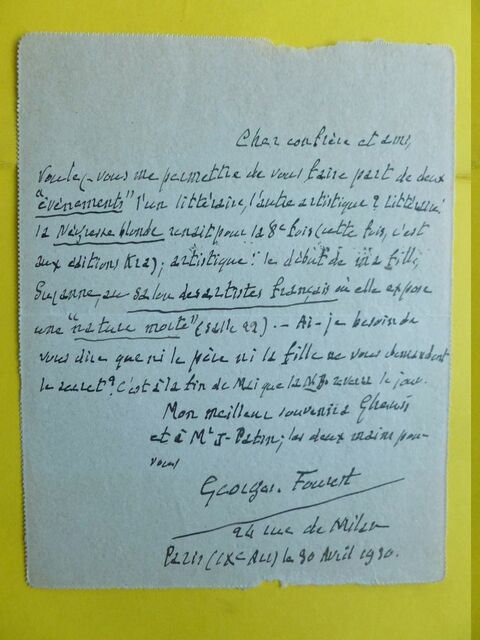 Cher confrère et ami,
Voulez-vous me permettre de vous faire part de deux
"évènements" l'un littéraire, l'autre artistique? littéraire:
la Négresse blonde renait pour la 8e fois (cette fois, c'est
aux editions Kra); artistique: le début de ma fille,
Suzanne, au Salon des artistes français où elle expose
une "nature morte" (salle 22). — Ai-je besoin de
vous dire que ni le père ni la fille ne vous demandent
le secret? C'est à la fin de Mai que la N.B. reverra le jour.
Mon meilleur souvenir à
et à Mr J-Patin; les deux mains pour
vous
Georges Fourest
24 rue de Milan
Paris (IXe Arr) le 30 Avril 1930.